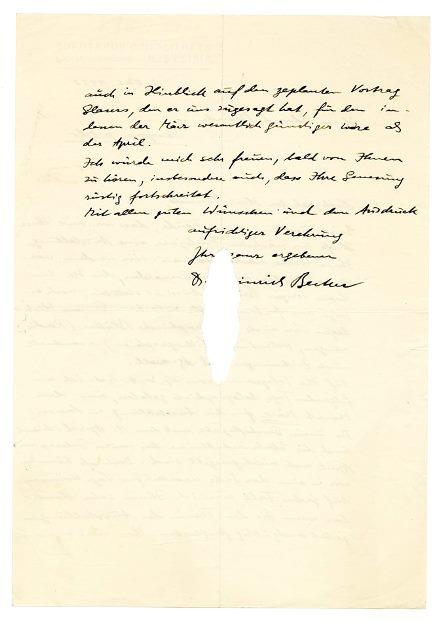 auch im Hinblick auf den geplanten Vortrag
den er uns zugesagt hat, für den
der März wesentlich günstiger wäre als
der April.
Ich würde mich sehr freuen, bald von Ihnen
zu hören, insbesondere auch, dass Ihre Genesung
rüstig fortschreitet.
Mit allen guten Wünschen und dem Ausdruck
aufrichtiger Verehrung
Ihr ganz ergebener
Becker